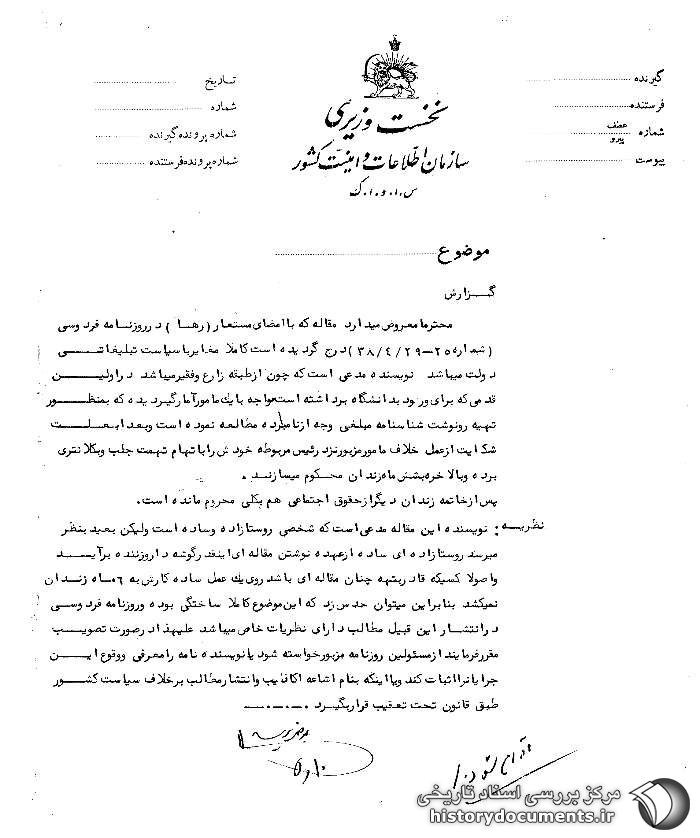 گیرنده
فرستنده
شماره عطف پیرو
پیوست
نخست وزیری
سازمان اطلاعات و امنیت کشور
س.ا.و.ا.ک
تاریخ
شماره
شماره پرونده گیرنده
شماره پرونده فرستنده
موضوع
گزارش
محترما معروض میدارد مقاله که با امضای مستعار (رها) در روزنامه فردوسی
(شماره ۲۵-۳۸/۴/۲۹) درج گردیده است کاملا مغایر با سیاست تبلیغاتی
دولت میباشد نویسنده مدعی است که چون از طبقه زارع وفقیر میباشد در اولین
قدمی که برای ورود بدانشگاه برداشته است مواجه با یك مامور آمار گردیده که بمنظور
تهیه رونوشت شناسنامه مبلغی وجه از نامبرده مطالعه نموده است وبعدا بعلت
شکایت از عمل خلاف مامور مزبور نزد رئیس مربوطه خودش را باتهام تهمت جلب وبکلانتری
برده وبالاخره بشش ماه زندان محکوم میسازند .
پس از خاتمه زندان دیگر از حقوق اجتماعی هم بکلی محروم مانده است .
نظریه : نویسنده این مقاله مدعی است که شخصی روستازاده وساده است ولیکن بعید بنظر
میرسد روستازاده ای ساده از عهده نوشتن مقاله ای اینقدر گوشه دار وزننده برآید
واصولا کسیکه قادر بتهیه چنان مقاله ای باشد روی یك عمل ساده کارش به ۶ ماه زندان
نمیکشد بنابراین میتوان حدس زد که این موضوع کاملا ساختگی بوده وروزنامه فردوسی
در انتشار این قبیل مطالب دارای نظریات خاص میباشد علیهذا در صورت تصویب
مقرر فرمایند از مسئولین روزنامه مزبور خواسته شود یا نویسنده نامه را معرفی ووقوع این
جرایانرا اثبات کند ویا اینکه بنام اشاعه اکاذیب وانتشار مطالب برخلاف سیاست کشور
طبق قانون تحت تعقیب قرار بگیرد .
اقدام شود
مرکز بررسی اسناد تاریخی
historydocuments.ir